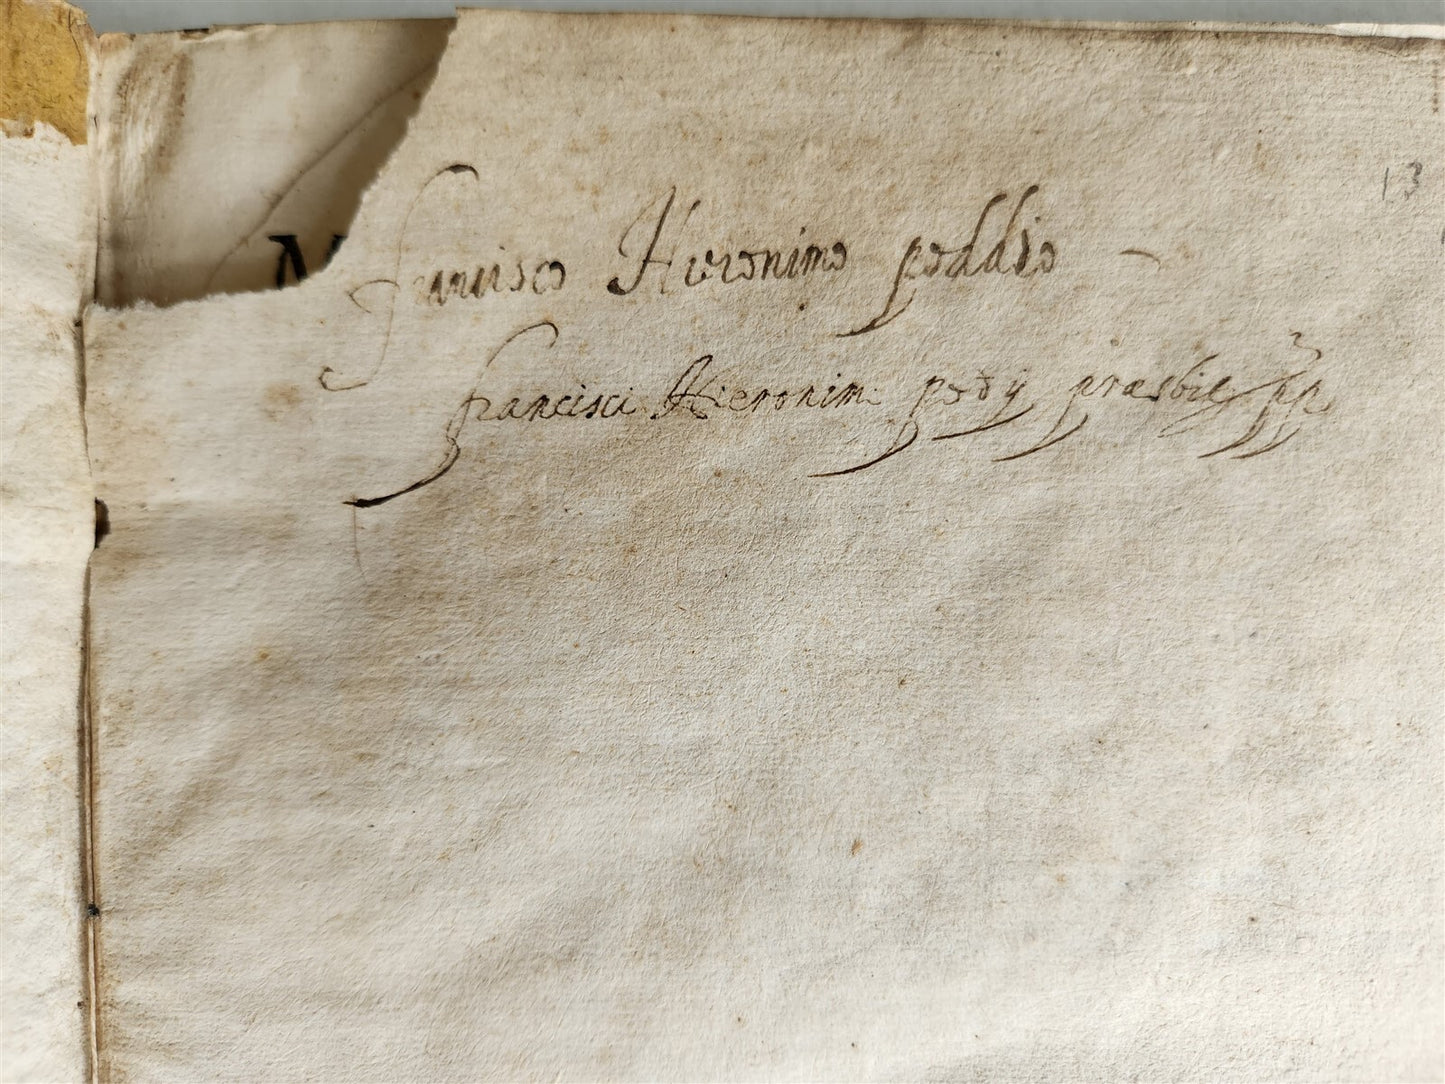 13
N
francisco Hieronimo poddio
francisci Hieronimi podij præsbit pp